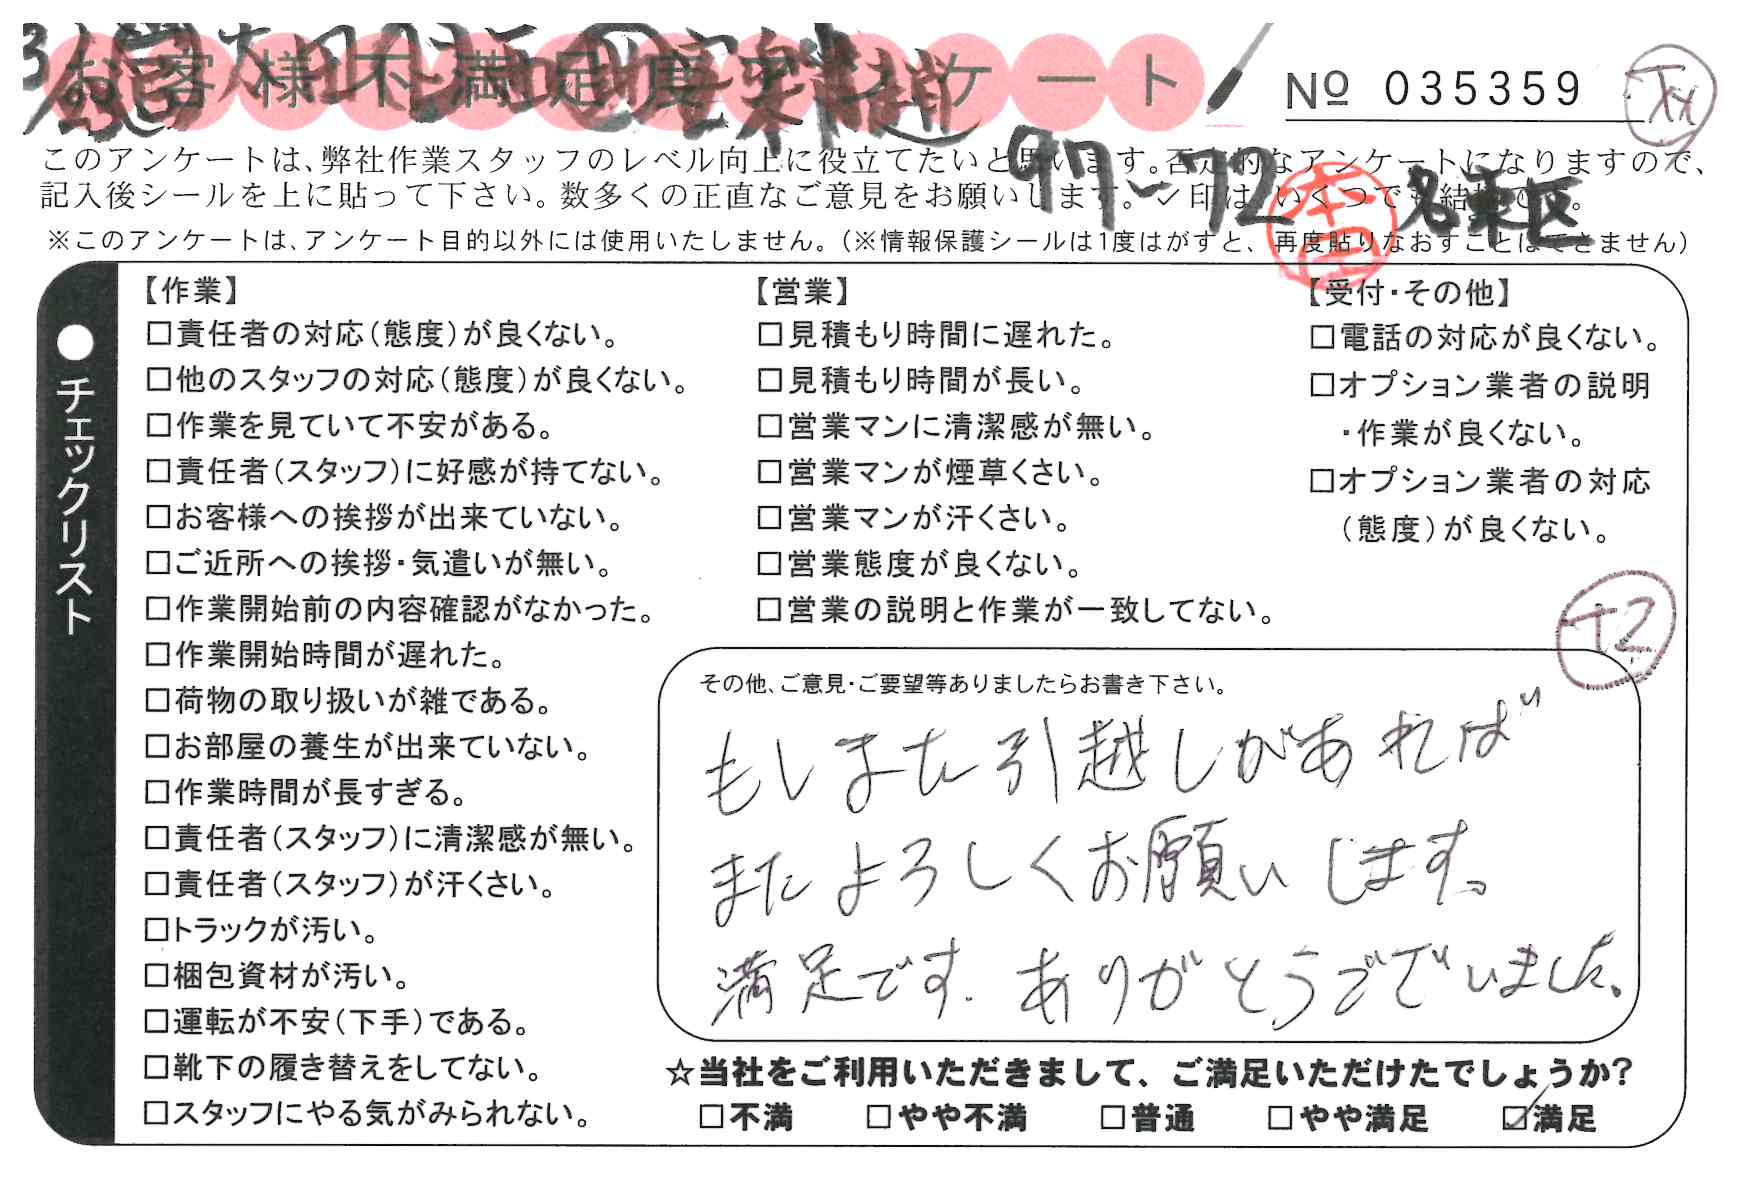 お客様不満足度アンケート
№ 035359
TH
97-72 名東区
本山
このアンケートは、弊社作業スタッフのレベル向上に役立てたいと思います。否定的なアンケートになりますので、
記入後シールを上に貼って下さい。数多くの正直なご意見をお願いします。✓印は、いくつでも結構です。
※このアンケートは、アンケート目的以外には使用いたしません。(※情報保護シールは1度はがすと、再度貼りなおすことはできません)
●チェックリスト
【作業】
□責任者の対応(態度)が良くない。
□他のスタッフの対応(態度)が良くない。
□作業を見ていて不安がある。
□責任者(スタッフ)に好感が持てない。
□お客様への挨拶が出来ていない。
□ご近所への挨拶・気遣いが無い。
□作業開始前の内容確認がなかった。
□作業開始時間が遅れた。
□荷物の取り扱いが雑である。
□お部屋の養生が出来ていない。
□作業時間が長すぎる。
□責任者(スタッフ)に清潔感が無い。
□責任者(スタッフ)が汗くさい。
□トラックが汚い。
□梱包資材が汚い。
□運転が不安(下手)である。
□靴下の履き替えをしてない。
□スタッフにやる気がみられない。
【営業】
□見積もり時間に遅れた。
□見積もり時間が長い。
□営業マンに清潔感が無い。
□営業マンが煙草くさい。
□営業マンが汗くさい。
□営業態度が良くない。
□営業の説明と作業が一致してない。
【受付・その他】
□電話の対応が良くない。
□オプション業者の説明
・作業が良くない。
□オプション業者の対応
(態度)が良くない。
+2
その他、ご意見・ご要望等ありましたらお書き下さい。
もしまた引越しがあれば
またよろしくお願いします。
満足です。ありがとうございました。
☆当社をご利用いただきまして、ご満足いただけたでしょうか?
□不満 □やや不満 □普通 □やや満足 ☑満足